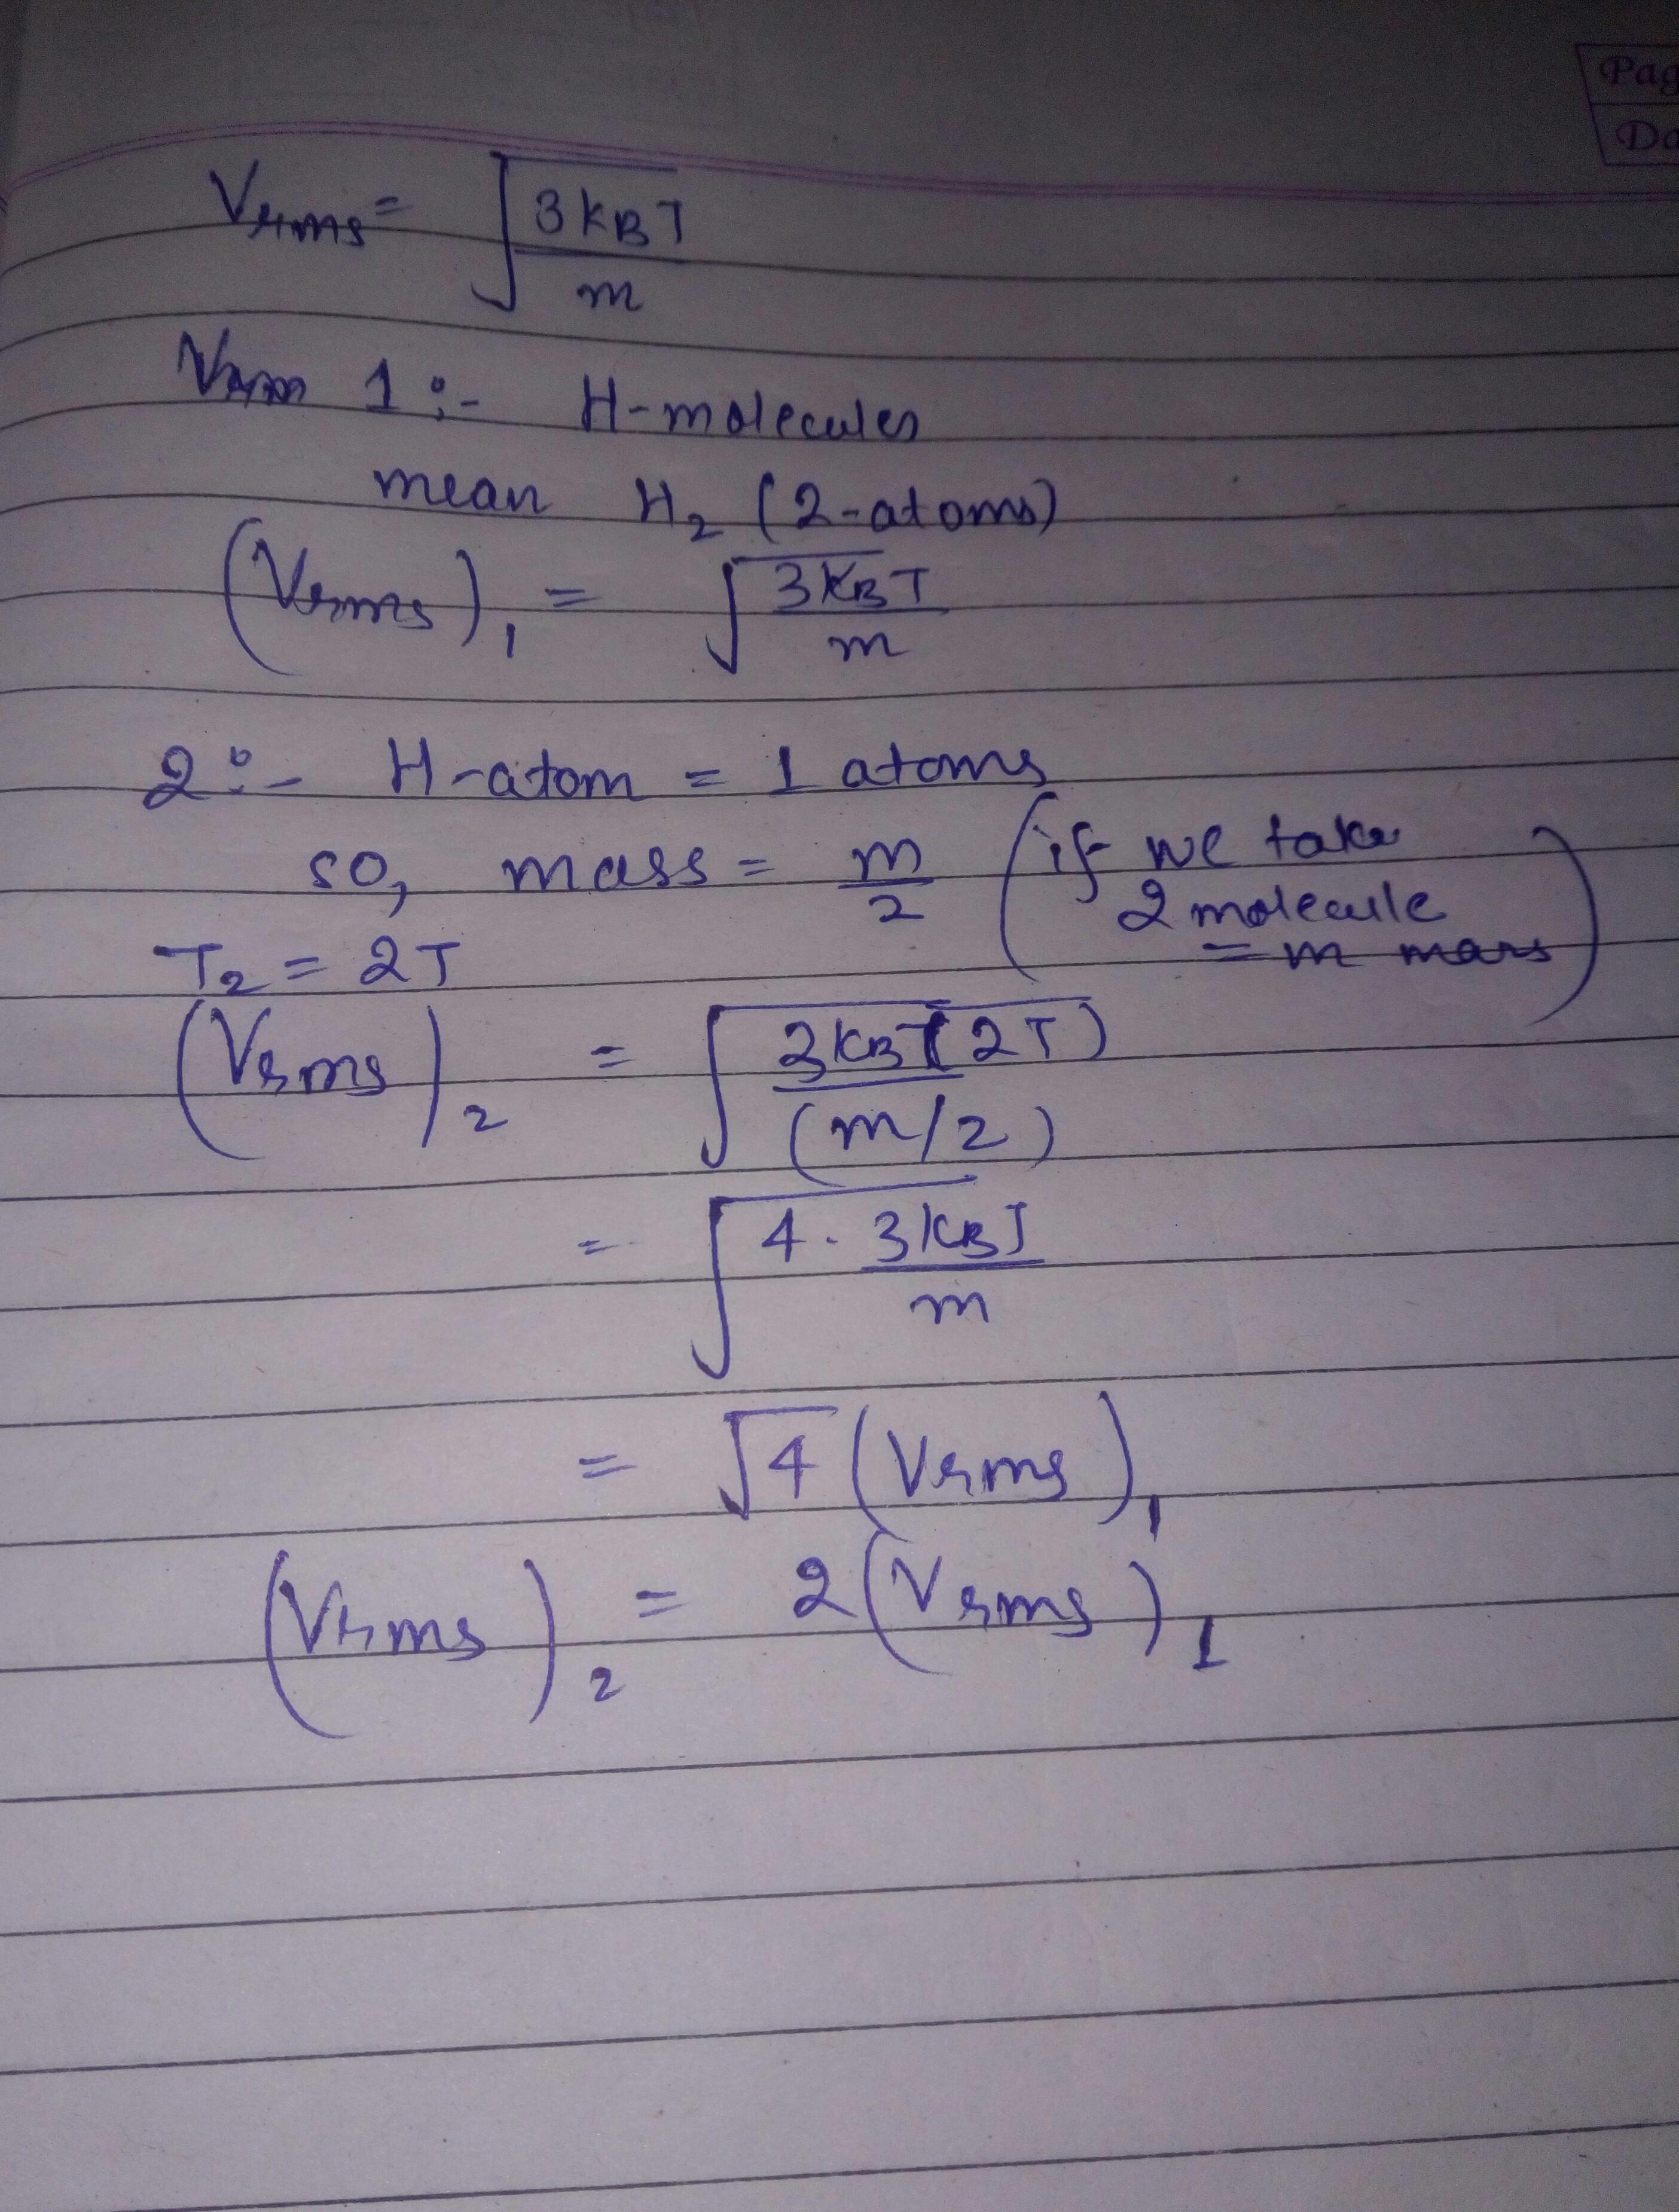 Pag
Da
Vrms = √(3KBT / m)
Vrms 1 :- H-molecules
mean H₂ (2-atoms)
(Vrms)₁ = √(3KBT / m)
2 :- H-atom = 1 atoms
so, mass = m/2 (if we take
2 molecule
= m mass)
T₂ = 2T
(Vrms)₂ = √(3KB(2T) / (m/2))
= √(4 · 3KBT / m)
= √4 (Vrms)₁
(Vrms)₂ = 2(Vrms)₁